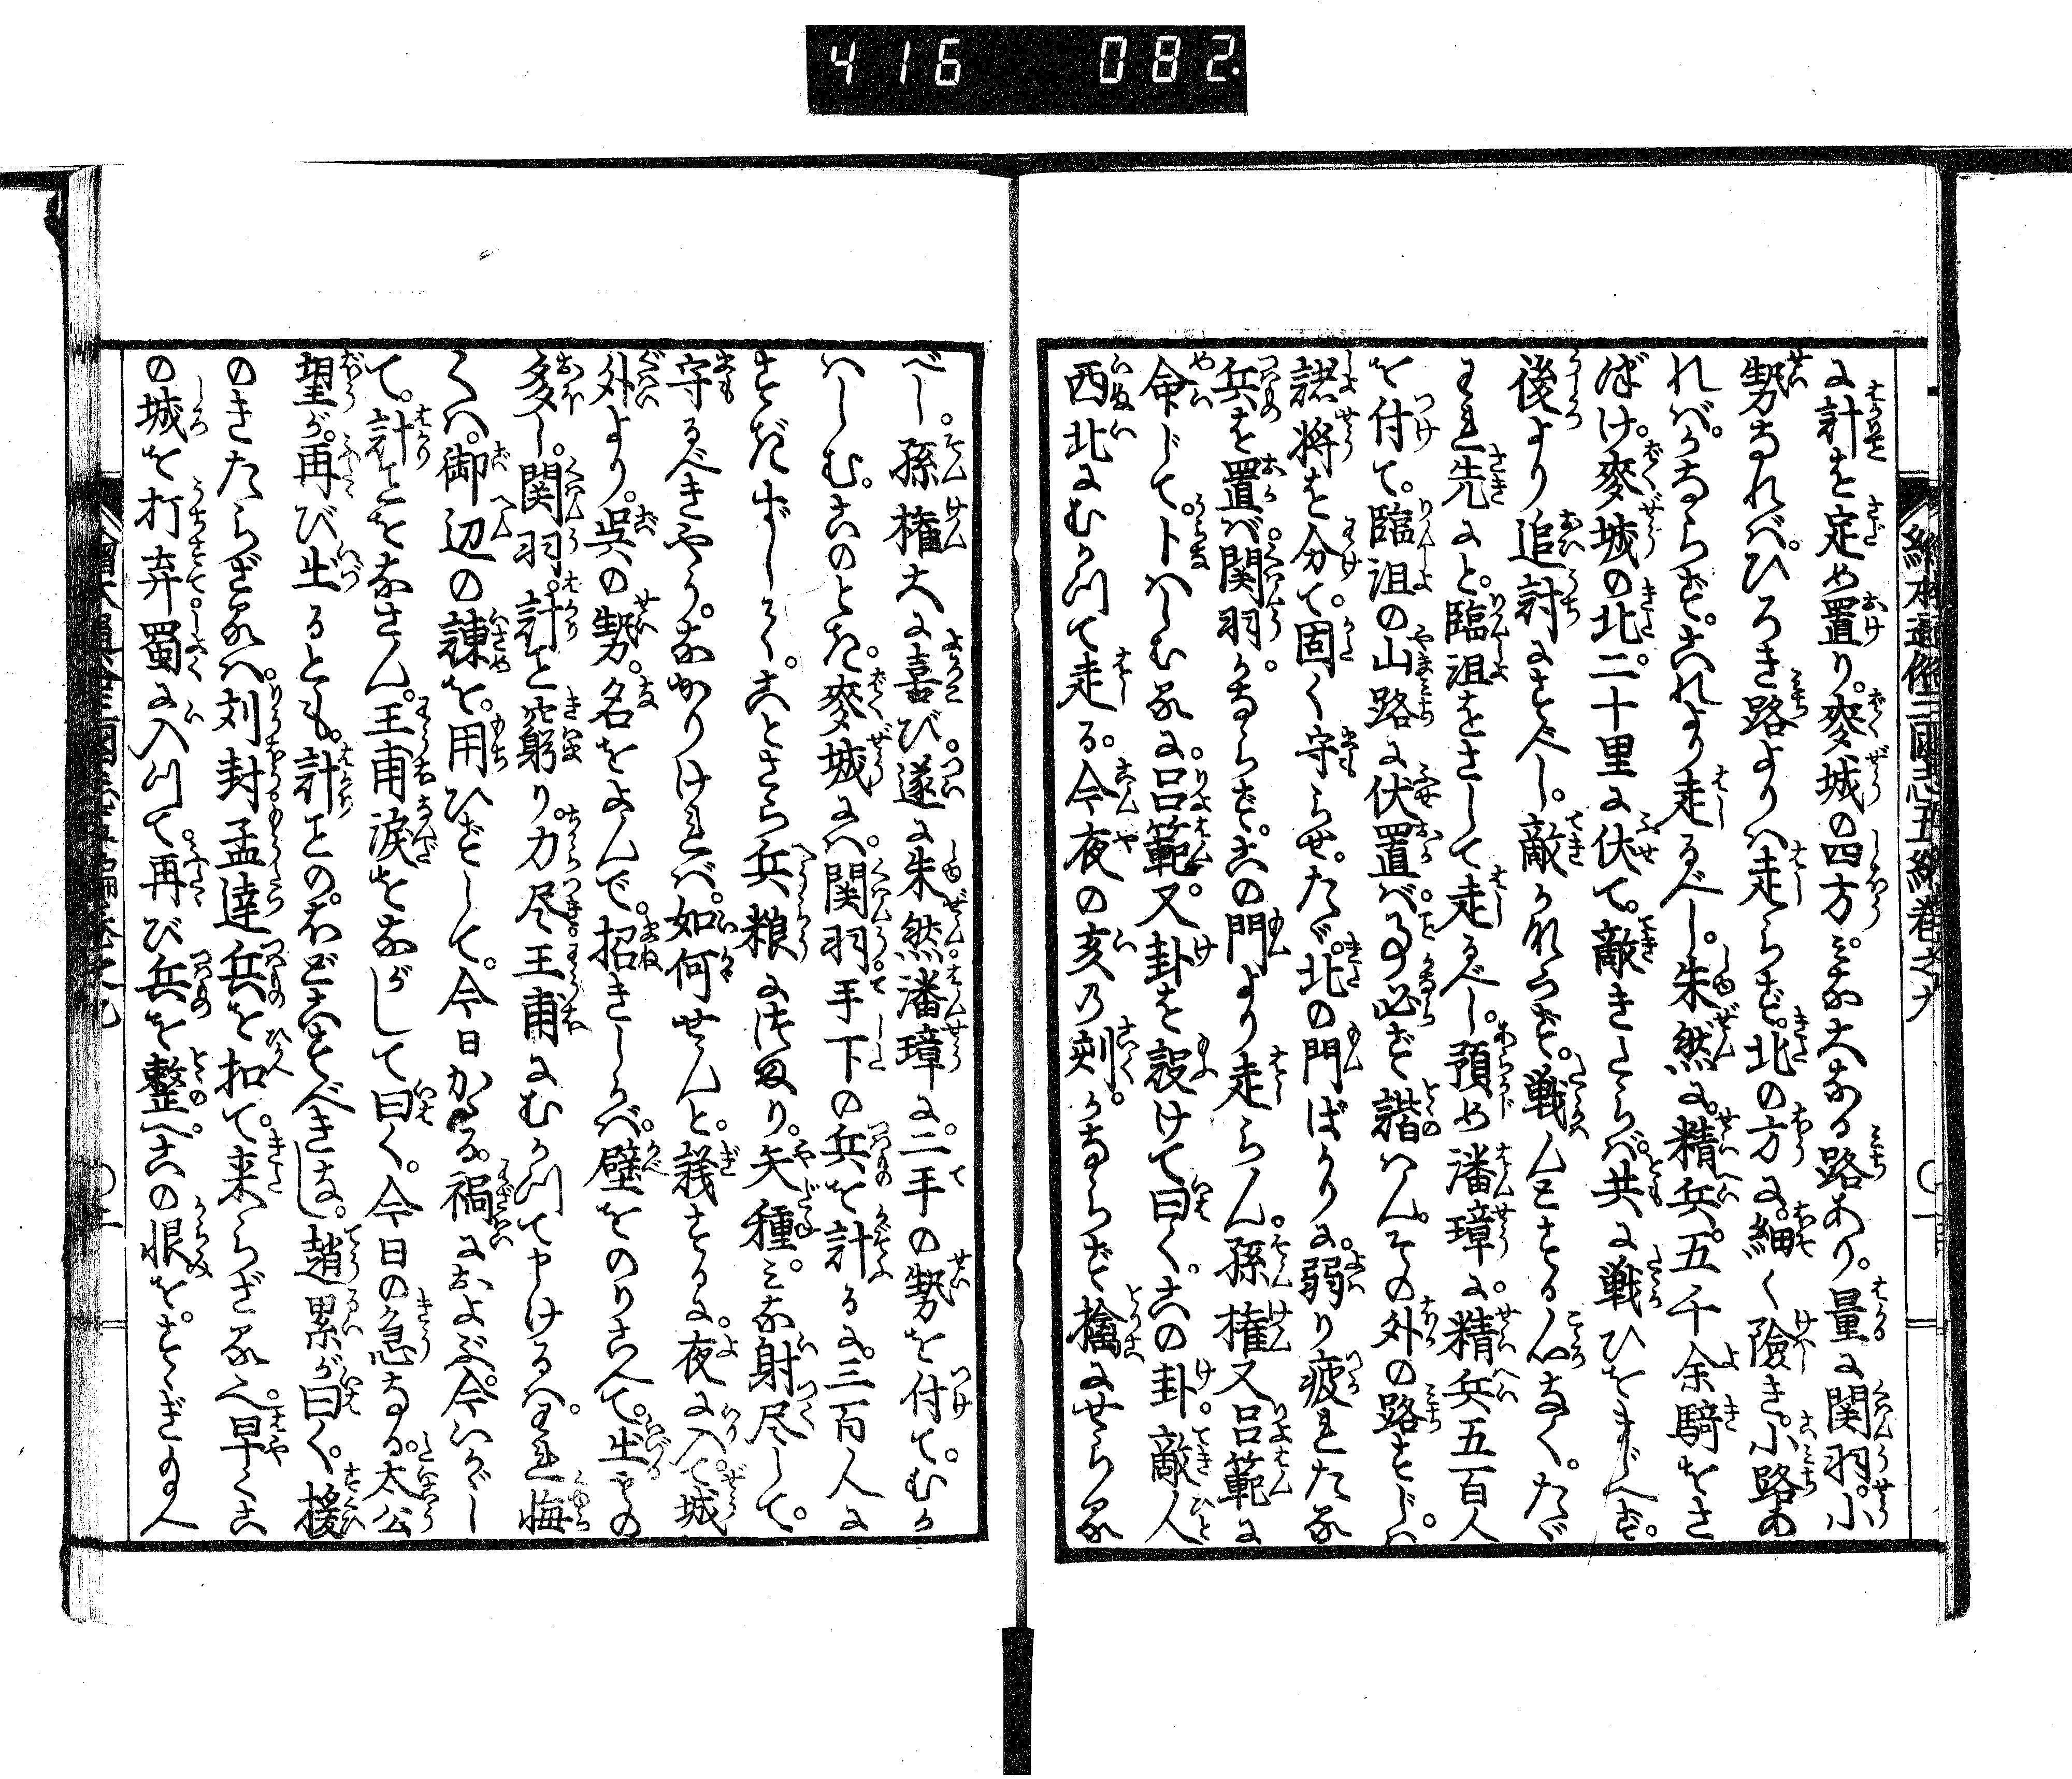 416 082.
に計を定め置り。麥城の四方。みな大なる路あり。量に関羽。小
勢なれバ。ひろき路よりハ走らず。北の方に。細く険き。小路あ
れバ。かならず。これより走るべし。朱然に。精兵。五千余騎をさ
づけ。麥城の北。二十里に伏て。敵きたらバ。共に戦ひをまじへず。
後より追討にすべし。敵かならず。戦んとする心なく。たゞ
われ先にと。臨沮をさして走るべし。預め潘璋に。精兵五百人
を付て。臨沮の山路に伏置バ。事必ず諧ハん。その外の路すじハ。
諸将を分て。固く守らせ。たゞ。北の門ばかりに。弱り疲れたる
兵を置バ。関羽。かならず。この門より走らん。孫権又呂範に
命じて。卜ハしむるに。呂範。又卦を設けて曰く。この卦。敵人
西北にむかつて走る。今夜の亥乃刻。かならず擒にせらる
べし。孫権大に喜び。遂に朱然。潘璋に。二手の勢を付て。むか
ハしむ。このとき。麥城にハ。関羽手下の兵を計るに。三百人に
すぎずしかく。ことさら兵粮につまり。矢種。みな射尽して。
守るべきやう。なかりけれバ。如何せんと。議するに。夜に入て城
外より。呉の勢。名をよんで。招きしかバ。壁をのりこへて。出るもの
多し。関羽。計こと窮り。力尽。王甫にむかつて申けるハ。われ悔
くハ。御辺の諌を。用ひずして。今日かゝる。禍におよぶ。今いかゞし
て。計ことをなさん。王甫涙をながして曰く。今日の急なる。太公
望が。再び出るとも。計ことの。ほどこすべきなし。趙累が曰く。援
のきたらざるハ。刘封孟達兵を扣て。来らざるへ。早くこ
の城を打弃。蜀に入つて。再び兵を整へ。この恨を。すゝぎ給へ